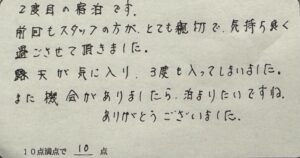 2度目の宿泊です。
前回もスタッフの方が、とても親切で、気持ち良く
過ごさせて頂きました。
露天が気に入り、3度も入ってしまいました。
また機会がありましたら、泊よりたいですね。
ありがとうございました。
10点満点で 10 点